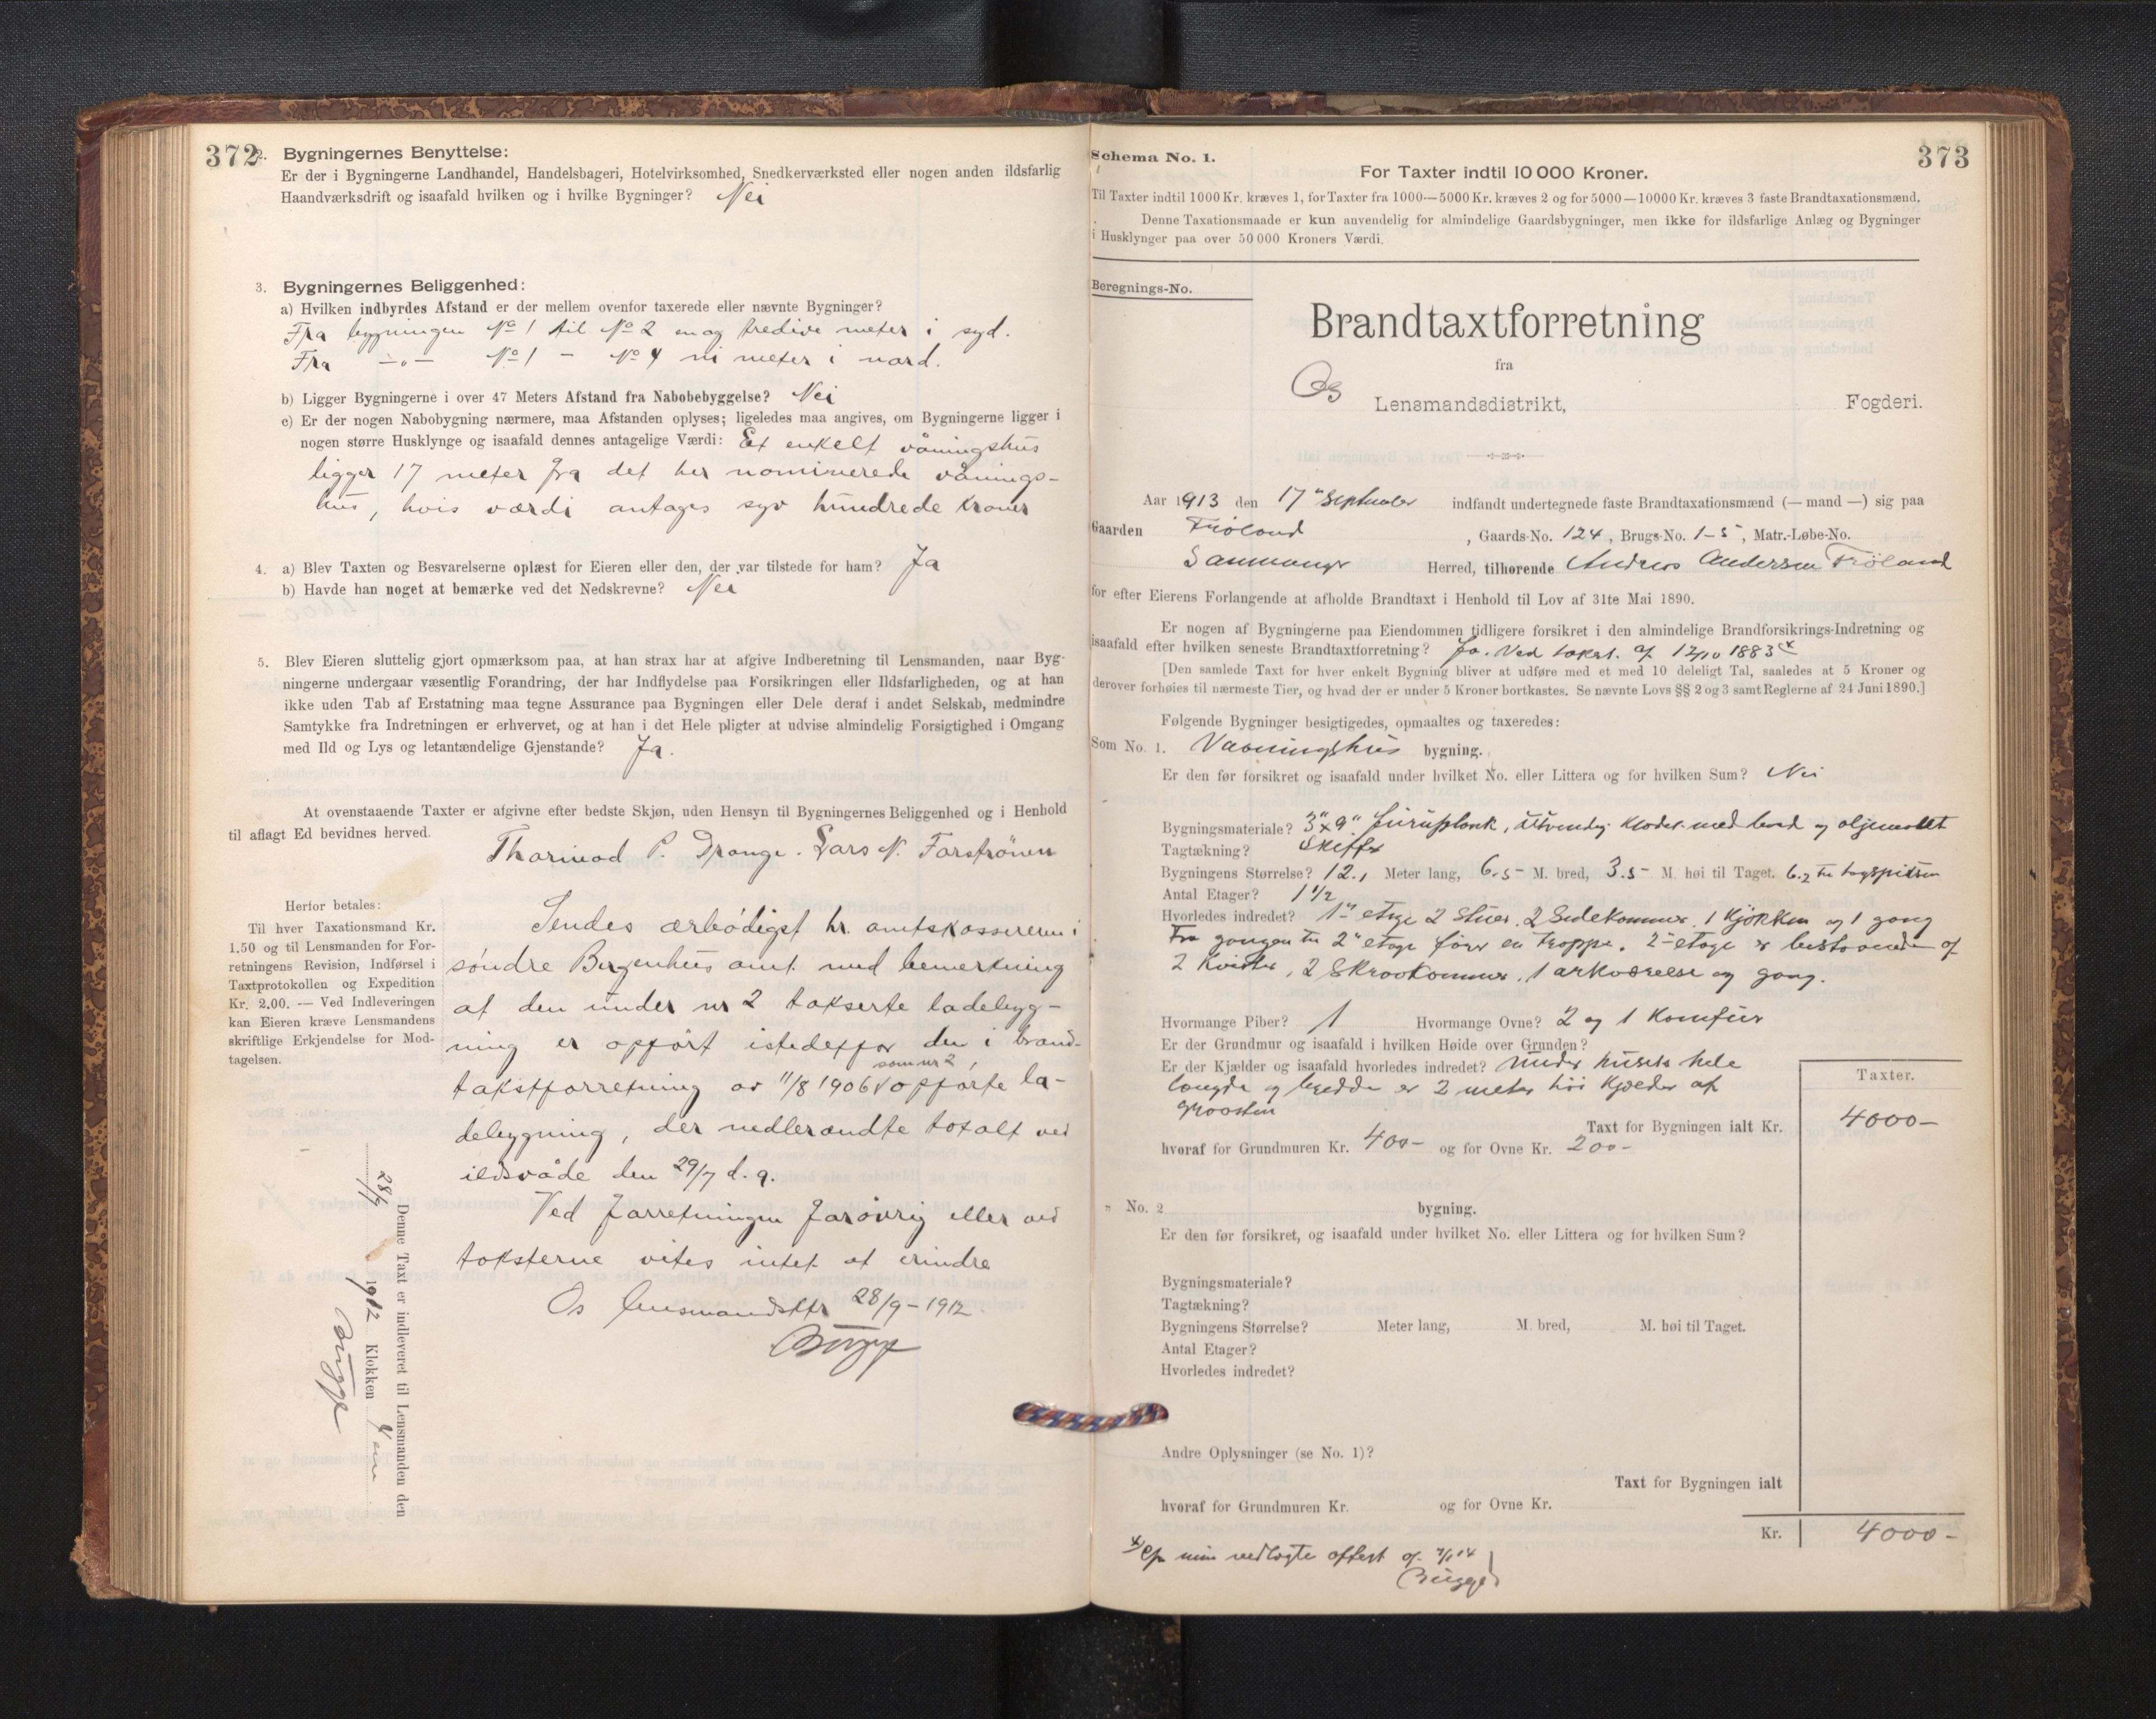 372
2. Bygningernes Benyttelse:
Er der i Bygningerne Landhandel, Handelsbageri, Hotelvirksomhed, Snedkerværksted eller nogen anden ildsfarlig
Haandværksdrift og isaafald hvilken og i hvilke Bygninger? Nei
3. Bygningernes Beliggenhed:
a) Hvilken indbyrdes Afstand er der mellem ovenfor taxerede eller nævnte Bygninger?
Fra bygningen No 1 til No 2 en og tredive meter i syd.
Fra -„- No 1 - No 4 ni meter i nord.
b) Ligger Bygningerne i over 47 Meters Afstand fra Nabobebyggelse? Nei
c) Er der nogen Nabobygning nærmere, maa Afstanden oplyses; ligeledes maa angives, om Bygningerne ligger i
nogen større Husklynge og isaafald dennes antagelige Værdi: Et enkelt våningshus
ligger 17 meter fra det her nominerede vånings-
hus, hvis værdi antages syv hundrede kroner
4. a) Blev Taxten og Besvarelserne oplæst for Eieren eller den, der var tilstede for ham? Ja
b) Havde han noget at bemærke ved det Nedskrevne? Nei
5. Blev Eieren sluttelig gjort opmærksom paa, at han strax har at afgive Indberetning til Lensmanden, naar Byg-
ningerne undergaar væsentlig Forandring, der har Indflydelse paa Forsikringen eller Ildsfarligheden, og at han
ikke uden Tab af Erstatning maa tegne Assurance paa Bygningen eller Dele deraf i andet Selskab, medmindre
Samtykke fra Indretningen er erhvervet, og at han i det Hele pligter at udvise almindelig Forsigtighed i Omgang
med Ild og Lys og letantændelige Gjenstande? Ja.
At ovenstaaende Taxter er afgivne efter bedste Skjøn, uden Hensyn til Bygningernes Beliggenhed og i Henhold
til aflagt Ed bevidnes herved.
Thormod P. Drange. Lars N. Forstrønen
Herfor betales:
Til hver Taxationsmand Kr.
1.50 og til Lensmanden for For-
retningens Revision, Indførsel i
Taxtprotokollen og Expedition
Kr. 2.00. — Ved Indleveringen
kan Eieren kræve Lensmandens
skriftlige Erkjendelse for Mod-
tagelsen.
Sendes ærbødigst hr. amtskassereren i
søndre Bergenhus amt med bemerkning
at den under nr 2 takserte ladebyg-
ning er opført istedetfor den i brand-
takstforretning av 11/8 1906 som nr 2 opførte la-
debygning, der nedbrændte totalt ved
ildsvåde den 29/7 d. a.
Ved forretningen forøvrig eller ved
taksterne vites intet at erindre
Os lensmandsktr 28/9 - 1912
Bugge
Denne Taxt er indleveret til Lensmanden den
28/9 1912 Klokken
Bugge
373
Schema No. 1.
For Taxter indtil 10 000 Kroner.
Til Taxter indtil 1000 Kr. kræves 1, for Taxter fra 1000—5000 Kr. kræves 2 og for 5000—10000 Kr. kræves 3 faste Brandtaxationsmænd.
Denne Taxationsmaade er kun anvendelig for almindelige Gaardsbygninger, men ikke for ildsfarlige Anlæg og Bygninger
i Husklynger paa over 50 000 Kroners Værdi.
Beregnings-No.
Brandtaxtforretning
fra
Os Lensmandsdistrikt, Fogderi.
Aar 1913 den 17 September indfandt undertegnede faste Brandtaxationsmænd (— mand —) sig paa
Gaarden Frøland, Gaards-No. 124, Brugs-No. 1-5, Matr.-Løbe-No.
Samnanger Herred, tilhørende Andreas Andersen Frøland
for efter Eierens Forlangende at afholde Brandtaxt i Henhold til Lov af 31te Mai 1890.
Er nogen af Bygningerne paa Eiendommen tidligere forsikret i den almindelige Brandforsikrings-Indretning og
isaafald efter hvilken seneste Brandtaxtforretning? Ja. Ved takst. af 12/10 1883 x
[Den samlede Taxt for hver enkelt Bygning bliver at udføre med et med 10 deleligt Tal, saaledes at 5 Kroner og
derover forhøies til nærmeste Tier, og hvad der er under 5 Kroner bortkastes. Se nævnte Lovs §§ 2 og 3 samt Reglerne af 24 Juni 1890.]
Følgende Bygninger besigtigedes, opmaaltes og taxeredes:
Som No. 1. Vaaningshus bygning.
Er den før forsikret og isaafald under hvilket No. eller Littera og for hvilken Sum? Nei
Bygningsmateriale? 3"x9" furuplank, utvendig klædt med bord og oljemalet
Tagtækning? Skiffer
Bygningens Størrelse? 12.1 Meter lang, 6.5 M. bred, 3.5 M. høi til Taget. 6.2 til tagspitsen
Antal Etager? 1 1/2
Hvorledes indredet? 1" etage 2 stuer, 2 Sidekammer, 1 kjøkken og 1 gang
Fra gangen til 2" etage fører en trappe. 2" etage er bestaaende af
2 kvister, 2 Skraakammer, 1 arkværelse og gang.
Hvormange Piber? 1 Hvormange Ovne? 2 og 1 komfur
Er der Grundmur og isaafald i hvilken Høide over Grunden?
Er der Kjælder og isaafald hvorledes indredet? Under husets hele
længde og bredde er 2 meter høi kjælder af
graasten
Taxter.
Taxt for Bygningen ialt Kr. 4000-
hvoraf for Grundmuren Kr. 400- og for Ovne Kr. 200-
„ No. 2 bygning.
Er den før forsikret, og isaafald under hvilket No. eller Littera og for hvilken Sum?
Bygningsmateriale?
Tagtækning?
Bygningens Størrelse? Meter lang, M. bred, M. høi til Taget.
Antal Etager?
Hvorledes indredet?
Andre Oplysninger (se No. 1)?
Taxt for Bygningen ialt
hvoraf for Grundmuren Kr. og for Ovne Kr.
Kr. 4000-
min vedlagte attest af
Bugge